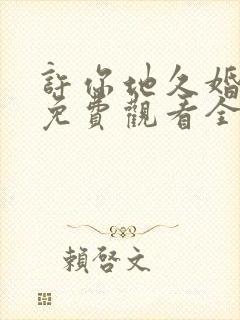 許你地久婚
免費觀看全
賴啓文